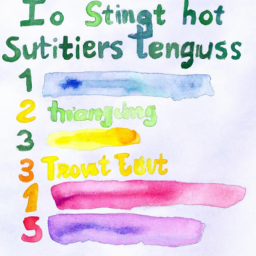 Io Stingt hot
Sutitiers tenguss
1
2 thiangdng
3
3 Trowt Eevt
1
5